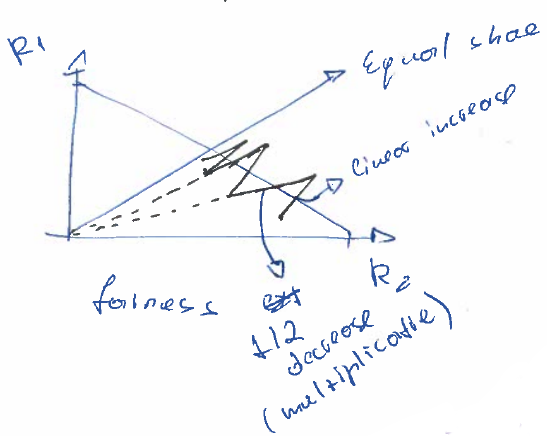 R1
Equal shae
linear increase
R2
fairness
1/2
decrease
(multiplicative)